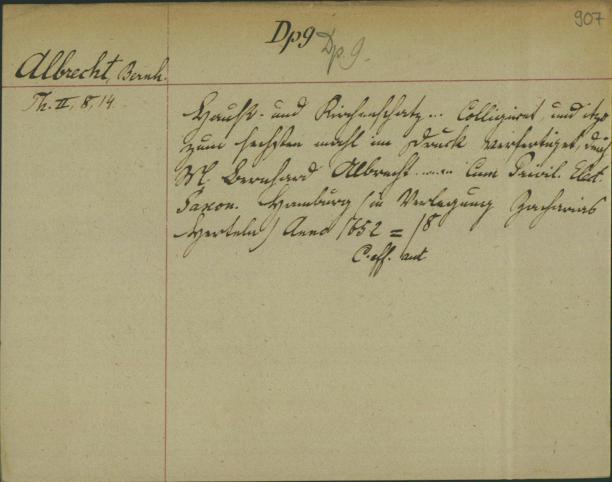 907
Dpg Dp. g.
Albrecht, Bernh.
Th. II, 8, 14.
Hauß- und Kirchenschatz... Colligiret, und itzo
zum sechsten mahl im Druck verfertiget, durch
M. Bernhard Albrecht ...... Cum Privil. Elect.
Saxon. Hamburg (in Verlegung Zacharias
Herteln) Anno 1652 = 18
C. eff. aut